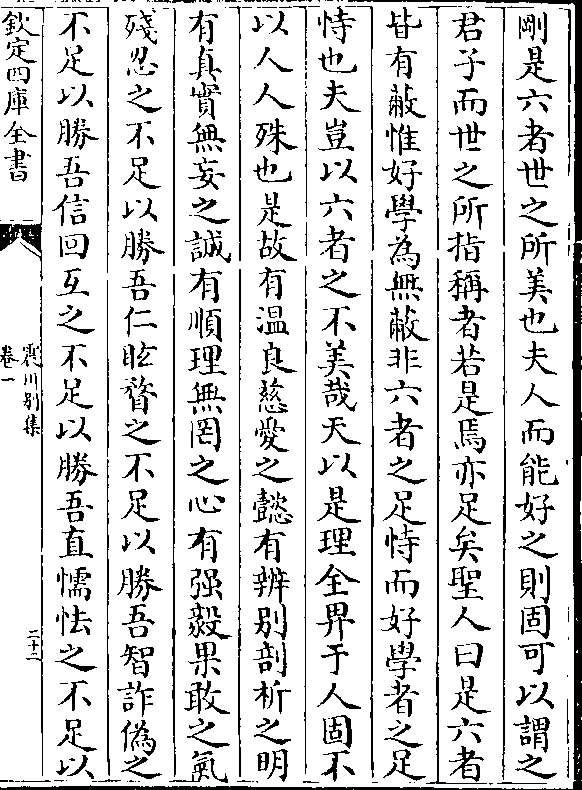 剛是六者世之所美也夫人而能好之則固可以謂之
君子而世之所指稱者若是焉亦足矣聖人曰是六者
皆有蔽惟好學為無蔽非六者之足恃而好學者之足
恃也夫豈以六者之不美哉天以是理全畀于人固不
以人人殊也是故有溫良慈愛之懿有辨别剖析之明
有真實無妄之誠有順理無罔之心有强毅果敢之氣
殘忍之不足以勝吾仁眩瞀之不足以勝吾智詐偽之
不足以勝吾信回互之不足以勝吾直懦怯之不足以
欽定四庫全書
震川别集
卷一
二十二